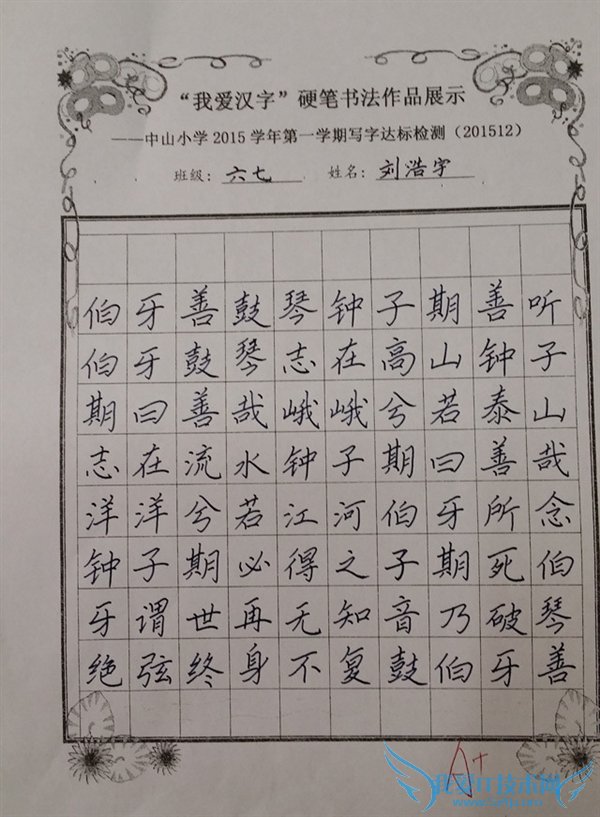 “我爱汉字”硬笔书法作品展示
——中山小学2015学年第一学期写字达标检测（201512）
班级：六七 姓名：刘浩宇
伯牙善鼓琴钟子期善听
伯牙鼓琴志在高山钟子
期曰善哉峨峨兮若泰山
志在流水钟子期曰善哉
洋洋兮若江河伯牙所念
钟子期必得之子期死伯
牙谓世再无知音乃破琴
绝弦终身不复鼓伯牙善
A+
我爱IT技术网